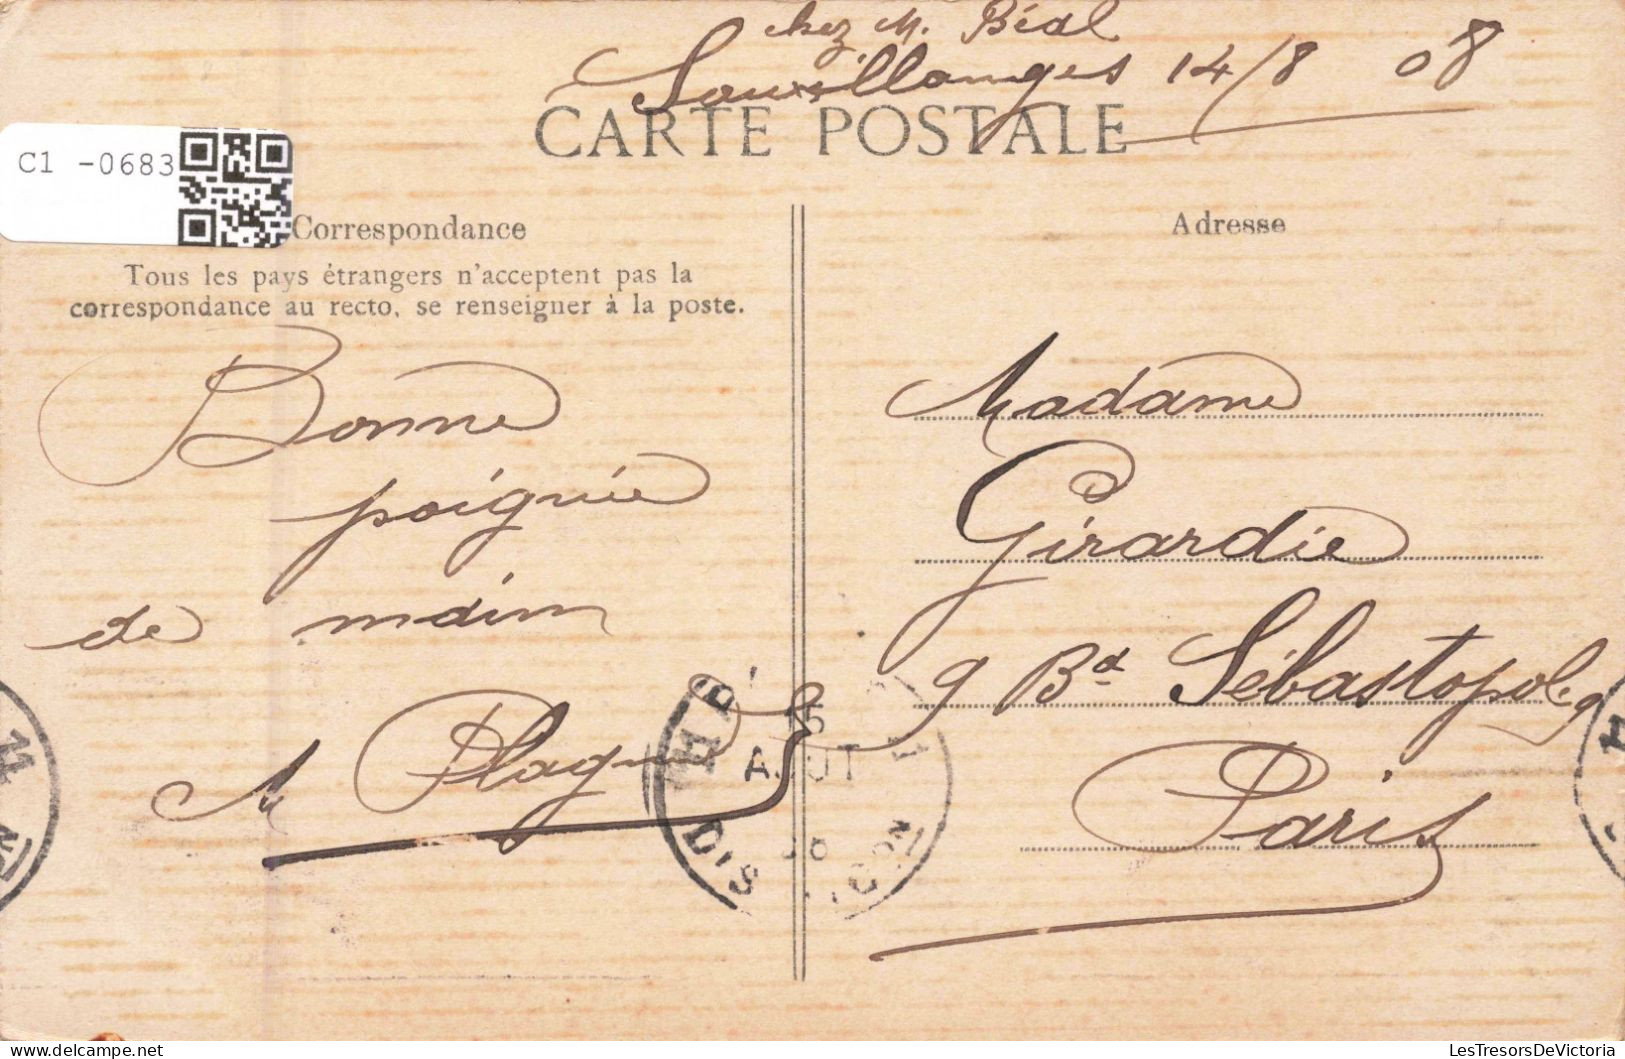 chez M. Béal
Sauxillanges 14/8 08
CARTE POSTALE
C1 -0683
Correspondance
Adresse
Tous les pays étrangers n'acceptent pas la
correspondance au recto, se renseigner à la poste.
Bonne
poignée
de main
M Plagne
Madame
Girardie
9 Bd Sébastopol 9
Paris
15
AOUT
08
DIS ON
LesTresorsDeVictoria